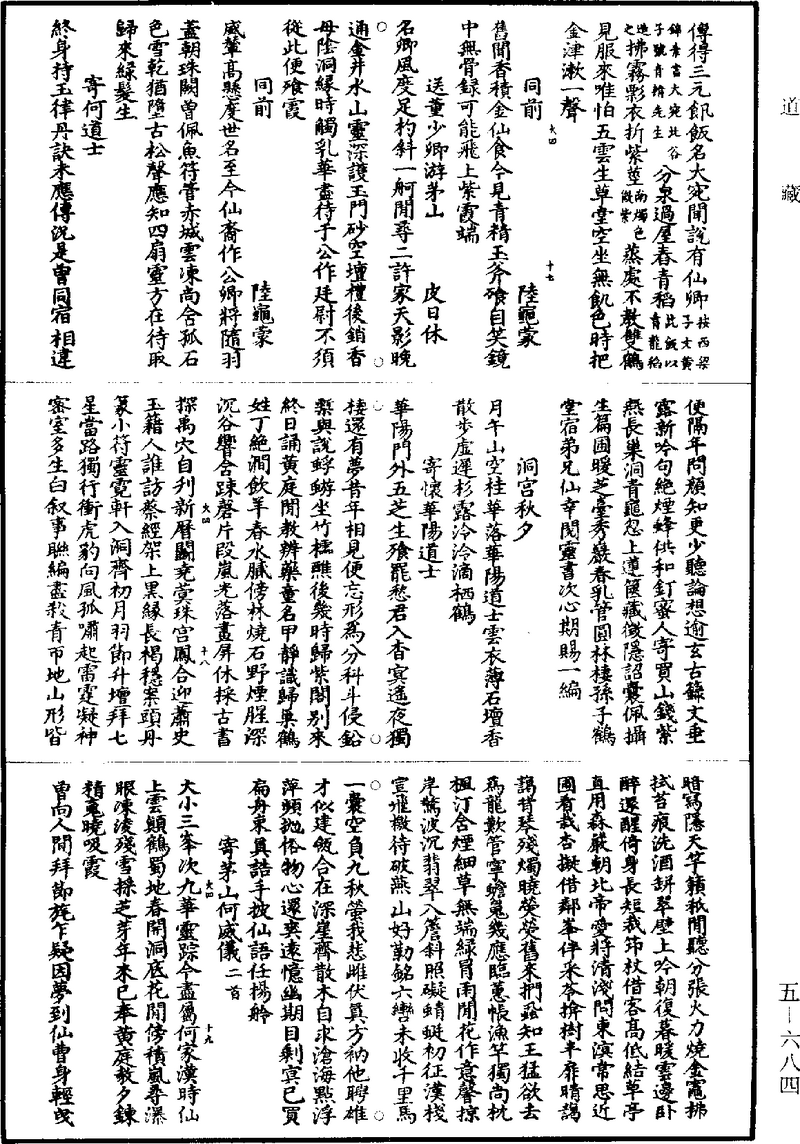 道藏
傳得三元䭀飯名大宛聞說有仙卿按西梁子文黃
錦書當大宛北谷子號青精先生分泉過屋舂青稻此飯以青龍稻
造之拂霧彯衣折紫莖南燭色微紫蒸處不教雙鶴
見服來唯怕五雲生草堂空坐無飢色時把
金津漱一聲
同前 陸龜蒙
舊聞香積金仙食今見青精玉斧飡自笑鏡
中無骨録可能飛上紫霞端
送董少卿游茅山 皮日休
名卿風度足杓斜一舸閒尋二許家天影晚
通金井水山靈深護玉門砂空壇禮後銷香
母陰洞緣時觸乳華盡待于公作廷尉不須
從此便飡霞
同前 陸龜蒙
威輦高懸度世名至今仙裔作公卿將隨羽
蓋朝珠闕曾佩魚符管赤城雲凍尚含孤石
色雪乾猶墮古松聲應知四扇靈方在待取
歸來綠髮生
寄何道士
終身持玉律丹訣未應傳況是曾同宿相違
便隔年問顏知更少聽論想逾玄古籙文垂
露新吟句絶煙蜂供和釘蜜人寄買山錢紫
燕長巢洞青龜忽上蓮篋藏徵隱詔囊佩攝
生篇圃暖芝臺秀巖春乳管圓林棲孫子鶴
堂宿弟兄仙幸閱靈書次心期賜一編
洞宮秋夕
月午山空桂華落華陽道士雲衣薄石壇香
散步虛遲杉露泠泠滴栖鶴
寄懷華陽道士
華陽門外五芝生飡罷愁君入杳冥遥夜獨
棲還有夢昔年相見便忘形爲分科斗侵鉛
槧與說蜉蝣坐竹櫺醮後幾時歸紫閣別來
終日誦黄庭閒教辨藥童名甲靜識歸巢鶴
姓丁絶澗飲羊春水膩傍林燒石野煙腥深
沉谷響含疎磬片段嵐光落畫屏休採古書
探禹穴自刊新曆闢堯蓂珠宫鳳合迎蕭史
玉籍人誰訪蔡經架上黑緣長褐穩案頭丹
篆小符靈霓軒入洞齊初月羽節升壇拜七
星當路獨行衝虎豹向風孤嘯起雷霆凝神
密室多生白叙事聯編盡殺青匝地山形皆
暗寫隱天竿籟秖聞聽分張火力燒金竈拂
拭苔痕洗酒缾翠壁上吟朝復暮暖雲邊卧
醉還醒倚身長短裁笻杖借客高低結草亭
直用森嚴朝北帝愛將清淺問東溟常思近
圃看栽杏擬借鄰峯伴采苓掩樹半扉晴靄
靄背琴殘燭曉熒熒舊來捫蝨知王猛欲去
爲龍歎管寧蟾兔幾應臨蕙帳漁竿獨尚枕
楓汀含煙細草無端緑冒雨閒花作意馨掠
岸驚波沉翡翠入簷斜照礙蜻蜓初征漢棧
宜飛檄待破燕山好勒銘六轡未收千里馬
一囊空負九秋螢我悲雌伏真方衲他騁雄
才似建瓴合在深星齊散木自求滄海點浮
萍頻拋俗物心還爽遠憶幽期目剩冥已買
扁舟束真誥手披仙語任揚舲
寄茅山何威儀二首
大小三峯次九華靈踪今盡屬何家漢時仙
上雲顛鶴蜀地春開洞底花閒傍積嵐尋瀑
眼凍凌殘雪採芝芽年來已奉黄庭教夕鍊
精魂曉吸霞
曾向人間拜節旄乍疑因夢到仙曹身輕曳
大四 十七
大四 十八
大四 十九
五—六八四